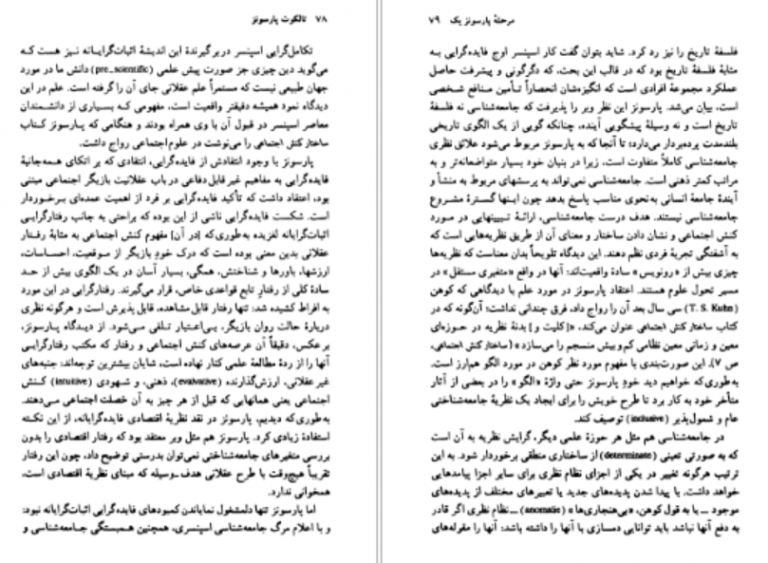 ۷۸ تالکوت پارسونز
تکامل‌گرایی اسپنسر دربرگیرندهٔ این اندیشهٔ اثبات‌گرایانه نیز هست که
می‌گوید دین چیزی جز صورت پیش علمی (pre_scientific) دانش ما در مورد
جهان طبیعی نیست که مستمراً علم عقلانی جای آن را گرفته است. علم در این
دیدگاه نمود همیشه دقیقتر واقعیت است، مفهومی که بسیاری از دانشمندان
معاصر اسپنسر در قبول آن با وی همراه بودند و هنگامی که پارسونز کتاب
ساختار کنش اجتماعی را می‌نوشت در علوم اجتماعی رواج داشت.
پارسونز با وجود انتقادش از فایده‌گرایی، انتقادی که بر اتکای همه‌جانبهٔ
فایده‌گرایی به مفاهیم غیر قابل دفاعی در باب عقلانیت بازیگر اجتماعی مبتنی
بود، اعتقاد داشت که تأکید فایده‌گرایی بر فرد از اهمیت عمده‌ای برخوردار
است. شکست فایده‌گرایی ناشی از این بوده که براحتی به جانب رفتارگرایی
اثبات‌گرایانه لغزیده به‌طوری‌که [در آن] مفهوم کنش اجتماعی به مثابهٔ رفتار
عقلانی بدین معنی بوده است که درک خود بازیگر از موقعیت، احساسات،
ارزشها، باورها و شناختش، همگی، بسیار آسان در یک الگوی بیش از حد
سادهٔ کلی از رفتارِ تابع قواعدی خاص، قرار می‌گیرند. رفتارگرایی در این مورد
به افراط کشیده شد: تنها رفتار قابل مشاهده، قابل پذیرش است و هرگونه نظری
دربارهٔ حالت روان بازیگر، بی‌اعتبار تلقی می‌شود. از دیدگاه پارسونز،
برعکس، دقیقاً آن عرصه‌های کنش اجتماعی و رفتار که مکتب رفتارگرایی
آنها را از ردهٔ مطالعهٔ علمی کنار نهاده است، شایان بیشترین توجه‌اند: جنبه‌های
غیر عقلانی، ارزش‌گذارنده (evaluative)، ذهنی، و شهودی (intuitive) کنش
اجتماعی یعنی همانهایی که قبل از هر چیز به آن خصلت اجتماعی می‌دهند.
به‌طوری‌که دیدیم، پارسونز در نقد نظریهٔ اقتصادی فایده‌گرایانه، از این نکته
استفادهٔ زیادی کرد. پارسونز هم مثل وبر معتقد بود که رفتار اقتصادی را بدون
بررسی متغیرهای جامعه‌شناختی نمی‌توان بدرستی توضیح داد، چون این رفتار
تقریباً هیچ‌وقت با طرح عقلانی هدف_وسیله که مبنای نظریهٔ اقتصادی است،
همخوانی ندارد.
اما پارسونز تنها دلمشغول نمایاندن کمبودهای فایده‌گرایی اثبات‌گرایانه نبود:
و با اعلام مرگ جامعه‌شناسی اسپنسری، همچنین همبستگی جامعه‌شناسی و
مرحلهٔ پارسونز یک ۷۹
فلسفهٔ تاریخ را نیز رد کرد. شاید بتوان گفت کار اسپنسر اوج فایده‌گرایی به
مثابهٔ فلسفهٔ تاریخ بود که در قالب این بحث، که دگرگونی و پیشرفت حاصل
عملکرد مجموعهٔ افرادی است که انگیزه‌شان انحصاراً تأمین منافع شخصی
است، بیان می‌شد. پارسونز این نظر وبر را پذیرفت که جامعه‌شناسی نه فلسفهٔ
تاریخ است و نه وسیلهٔ پیشگویی آینده، چنانکه گویی از یک الگوی تاریخی
بلندمدت پرده‌بردار می‌دارد؛ تا آنجا که به پارسونز مربوط می‌شود علائق نظری
جامعه‌شناسی کاملاً متفاوت است، زیرا در بنیان خود بسیار متواضعانه‌تر و به
مراتب کمتر ذهنی است. جامعه‌شناسی نمی‌تواند به پرسشهای مربوط به منشأ و
آیندهٔ جامعهٔ انسانی به‌نحوی مناسب پاسخ بدهد چون اینها گسترهٔ مشروع
جامعه‌شناسی نیستند. هدف درست جامعه‌شناسی، ارائهٔ تبیینهایی در مورد
کنش اجتماعی و نشان دادن ساختار و معنای آن از طریق نظریه‌هایی است که
به آشفتگی تجربهٔ فردی نظم دهند. این دیدگاه تلویحاً بدان معناست که نظریه‌ها
چیزی بیش از «رونویس» سادهٔ واقعیت‌اند: آنها در واقع «متغیری مستقل» در
مسیر تحول علوم هستند. اعتقاد پارسونز در مورد علم با دیدگاهی که کوهن
(T. S. Kuhn) سی سال بعد آن را رواج داد، فرق چندانی نداشت؛ آن‌گونه که در
کتاب ساختار کنش اجتماعی عنوان می‌کند، «[کلیت و] بدنهٔ نظریه در حوزه‌ای
معین و زمانی معین نظامی کم‌وبیش منسجم را می‌سازد» (ساختار کنش اجتماعی،
ص ۷). این صورت‌بندی با مفهوم مورد نظر کوهن در مورد الگو هم‌ارز است.
به‌طوری‌که خواهیم دید خود پارسونز حتی واژهٔ «الگو» را در بعضی از آثار
متأخر خود به کار برد تا طرح خویش را برای ایجاد یک نظریهٔ جامعه‌شناختی
عام و شمول‌پذیر (inclusive) توصیف کند.
در جامعه‌شناسی هم مثل هر حوزهٔ علمی دیگر، گرایش نظریه به آن است
که به صورتی تعینی (determinate) از ساختاری منطقی برخوردار شود. به این
ترتیب هرگونه تغییر در یکی از اجزای نظام نظری برای سایر اجزا پیامدهایی
خواهد داشت. با پیدا شدن پدیده‌های جدید یا تعبیرهای مختلف از پدیده‌های
موجود ــ یا به قول کوهن، «بی‌هنجاریها» (anomatic) ــ نظام نظری اگر قادر
به دفع آنها نباشد باید توانایی دمسازی با آنها را داشته باشد: آنها را مقوله‌های